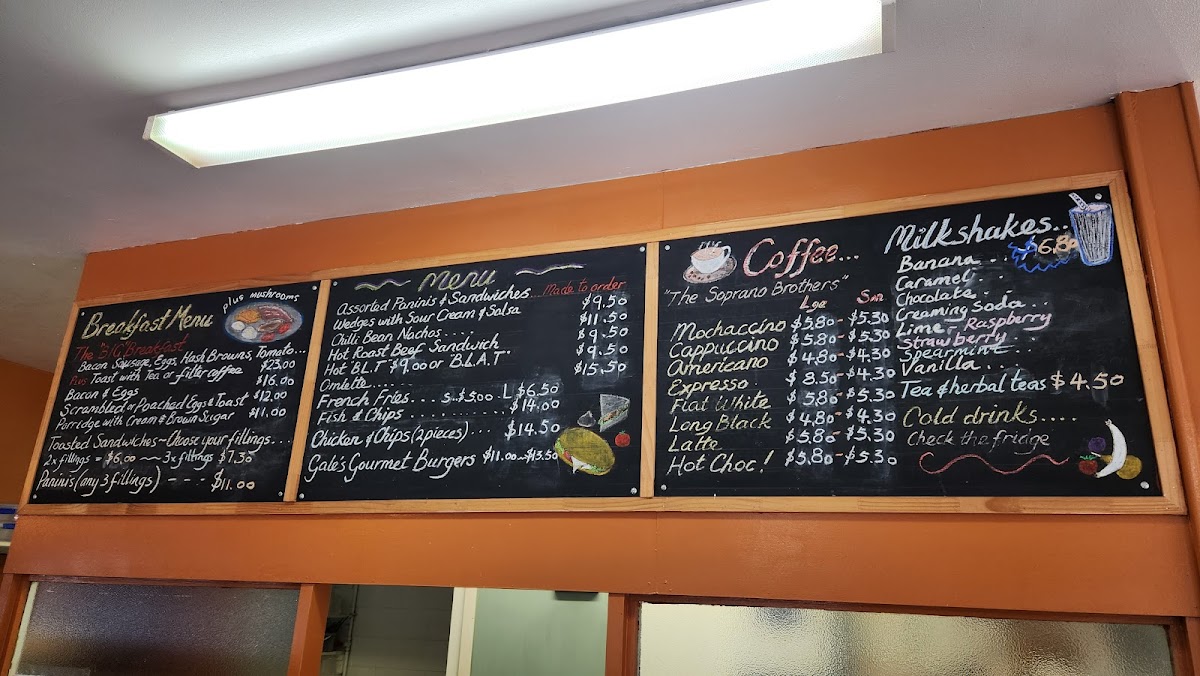 Breakfast Menu
plus mushrooms
The "BIG" Breakfast
Bacon, Sausage, Eggs, Hash Browns, Tomato...
Plus Toast with Tea or filter coffee $23.00
Bacon & Eggs $16.00
Scrambled or Poached Eggs & Toast $12.00
Porridge with Cream & Brown Sugar $11.00
Toasted Sandwiches ~ Choose your fillings....
2x fillings = $6.00 ~~ 3x fillings $7.30
Paninis (any 3 fillings) - - - $11.00
Menu
Assorted Paninis & Sandwiches... Made to order
Wedges with Sour Cream & Salsa $9.50
Chili Bean Nachos..... $11.50
Hot Roast Beef Sandwich $9.50
Hot B.L.T $9.00 or B.L.A.T. $9.50
Omlette...... $15.50
French Fries.... S-$5.00 - L $6.50
Fish & Chips $14.00
Chicken & Chips (2 pieces)... $14.50
Gale's Gourmet Burgers $11.00-$13.50
Coffee...
"The Soprano Brothers"
Lge Sm
Mochaccino $5.80 - $5.30
Cappuccino $5.80 - $5.30
Americano $4.80 - $4.30
Expresso $4.30
Flat White $5.80 - $5.30
Long Black $4.80 - $4.30
Latte $5.80 - $5.30
Hot Choc! $5.80 - $5.30
Milkshakes..
$6.80
Banana...
Caramel.
Chocolate
Creaming Soda...
Lime - Raspberry
Strawberry
Spearmint..
Vanilla...
Tea & herbal teas $4.50
Cold drinks....
Check the fridge